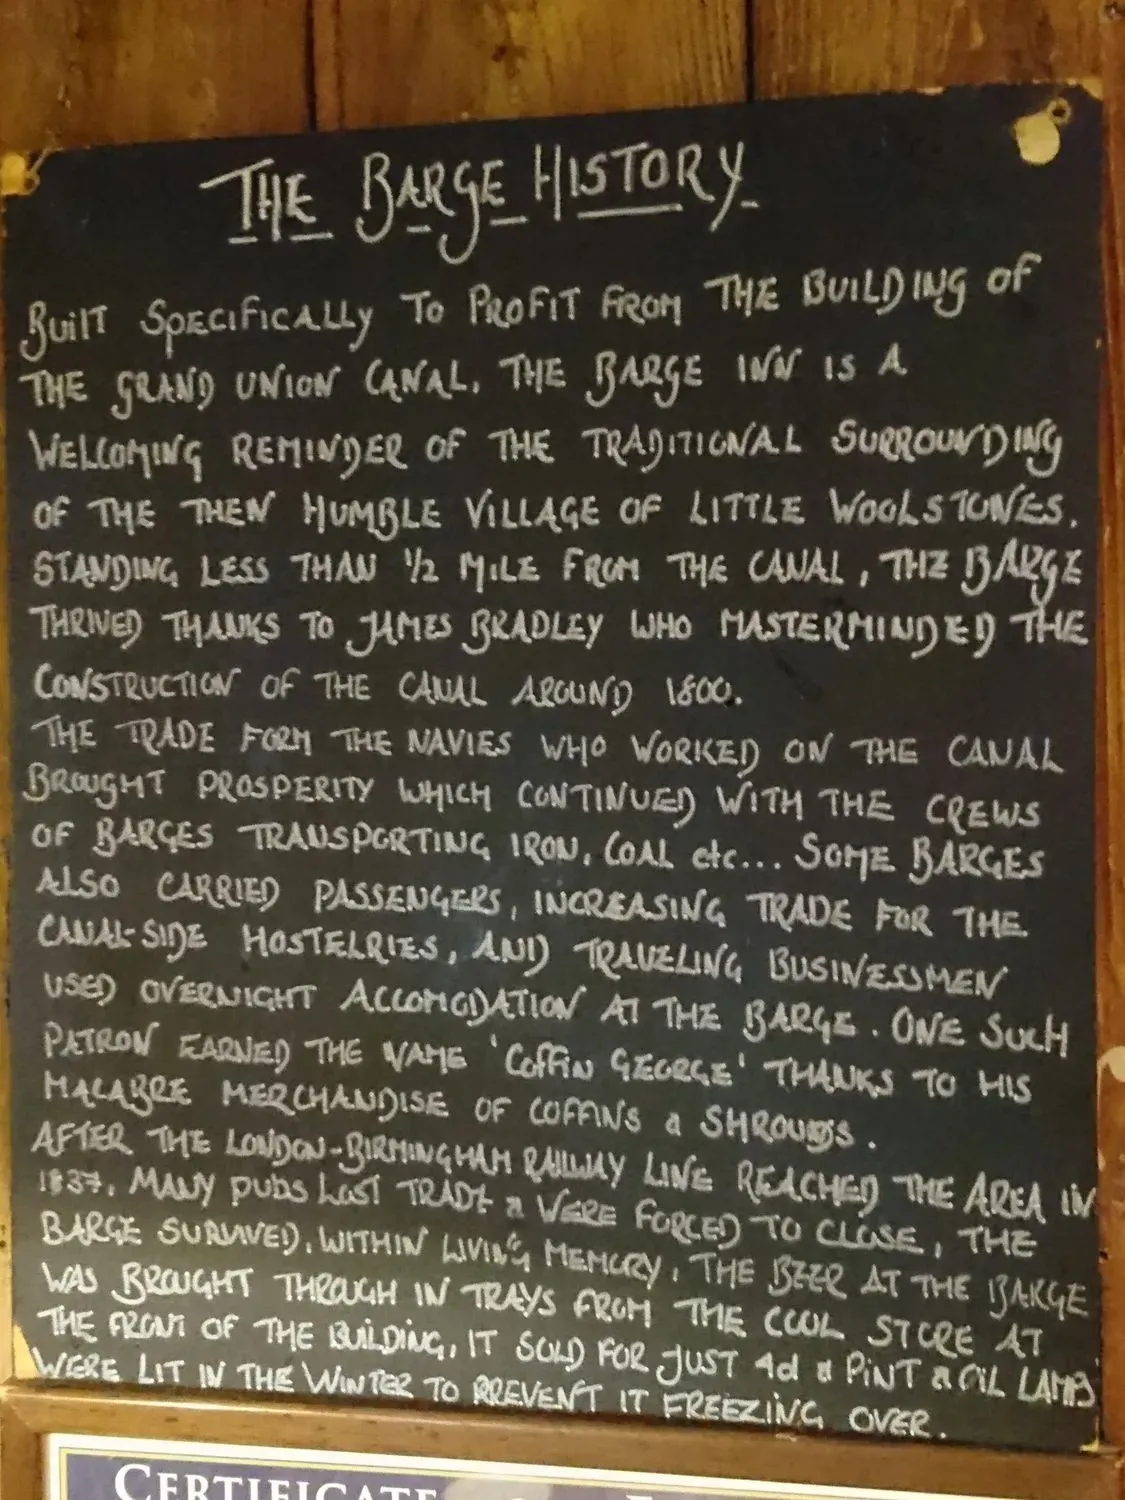 THE BARGE HISTORY
BUILT SPECIFICALLY TO PROFIT FROM THE BUILDING OF
THE GRAND UNION CANAL, THE BARGE INN IS A
WELCOMING REMINDER OF THE TRADITIONAL SURROUNDING
OF THE THEN HUMBLE VILLAGE OF LITTLE WOOLSTONES.
STANDING LESS THAN 1/2 MILE FROM THE CANAL, THE BARGE
THRIVED THANKS TO JAMES BRADLEY WHO MASTERMINDED THE
CONSTRUCTION OF THE CANAL AROUND 1800.
THE TRADE FORM THE NAVIES WHO WORKED ON THE CANAL
BROUGHT PROSPERITY WHICH CONTINUED WITH THE CREWS
OF BARGES TRANSPORTING IRON, COAL etc... SOME BARGES
ALSO CARRIED PASSENGERS, INCREASING TRADE FOR THE
CANAL-SIDE HOSTELRIES, AND TRAVELING BUSINESSMEN
USED OVERNIGHT ACCOMODATION AT THE BARGE. ONE SUCH
PATRON EARNED THE NAME 'COFFIN GEORGE' THANKS TO HIS
MACABRE MERCHANDISE OF COFFINS & SHROUDS.
AFTER THE LONDON-BIRMINGHAM RAILWAY LINE REACHED THE AREA IN
1837, MANY PUBS LOST TRADE & WERE FORCED TO CLOSE, THE
BARGE SURVIVED, WITHIN LIVING MEMORY, THE BEER AT THE BARGE
WAS BROUGHT THROUGH IN TRAYS FROM THE COOL STORE AT
THE FRONT OF THE BUILDING, IT SOLD FOR JUST 4d a PINT & OIL LAMPS
WERE LIT IN THE WINTER TO PREVENT IT FREEZING OVER.
CERTIFICATE